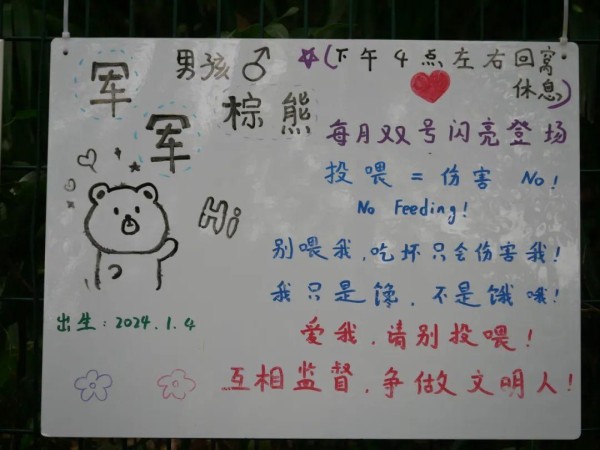 军军
男孩♂
棕熊
☆(下午4点左右回窝
休息)
每月双号闪亮登场
投喂=伤害 No!
No Feeding!
Hi
别喂我,吃坏只会伤害我!
我只是馋,不是饿哦!
出生:2024.1.4
爱我,请别投喂!
互相监督,争做文明人!